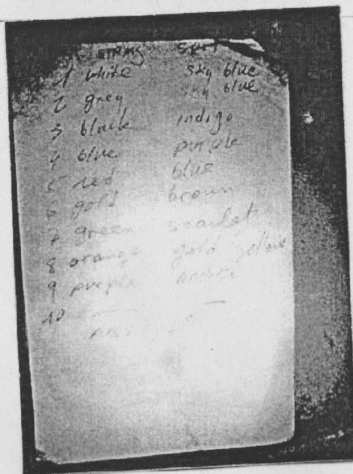 string
1 white sky blue
2 grey sky blue
3 black indigo
4 blue purple
5 red blue
6 gold brown
7 green scarlet
8 orange gold yellow
9 purple
10